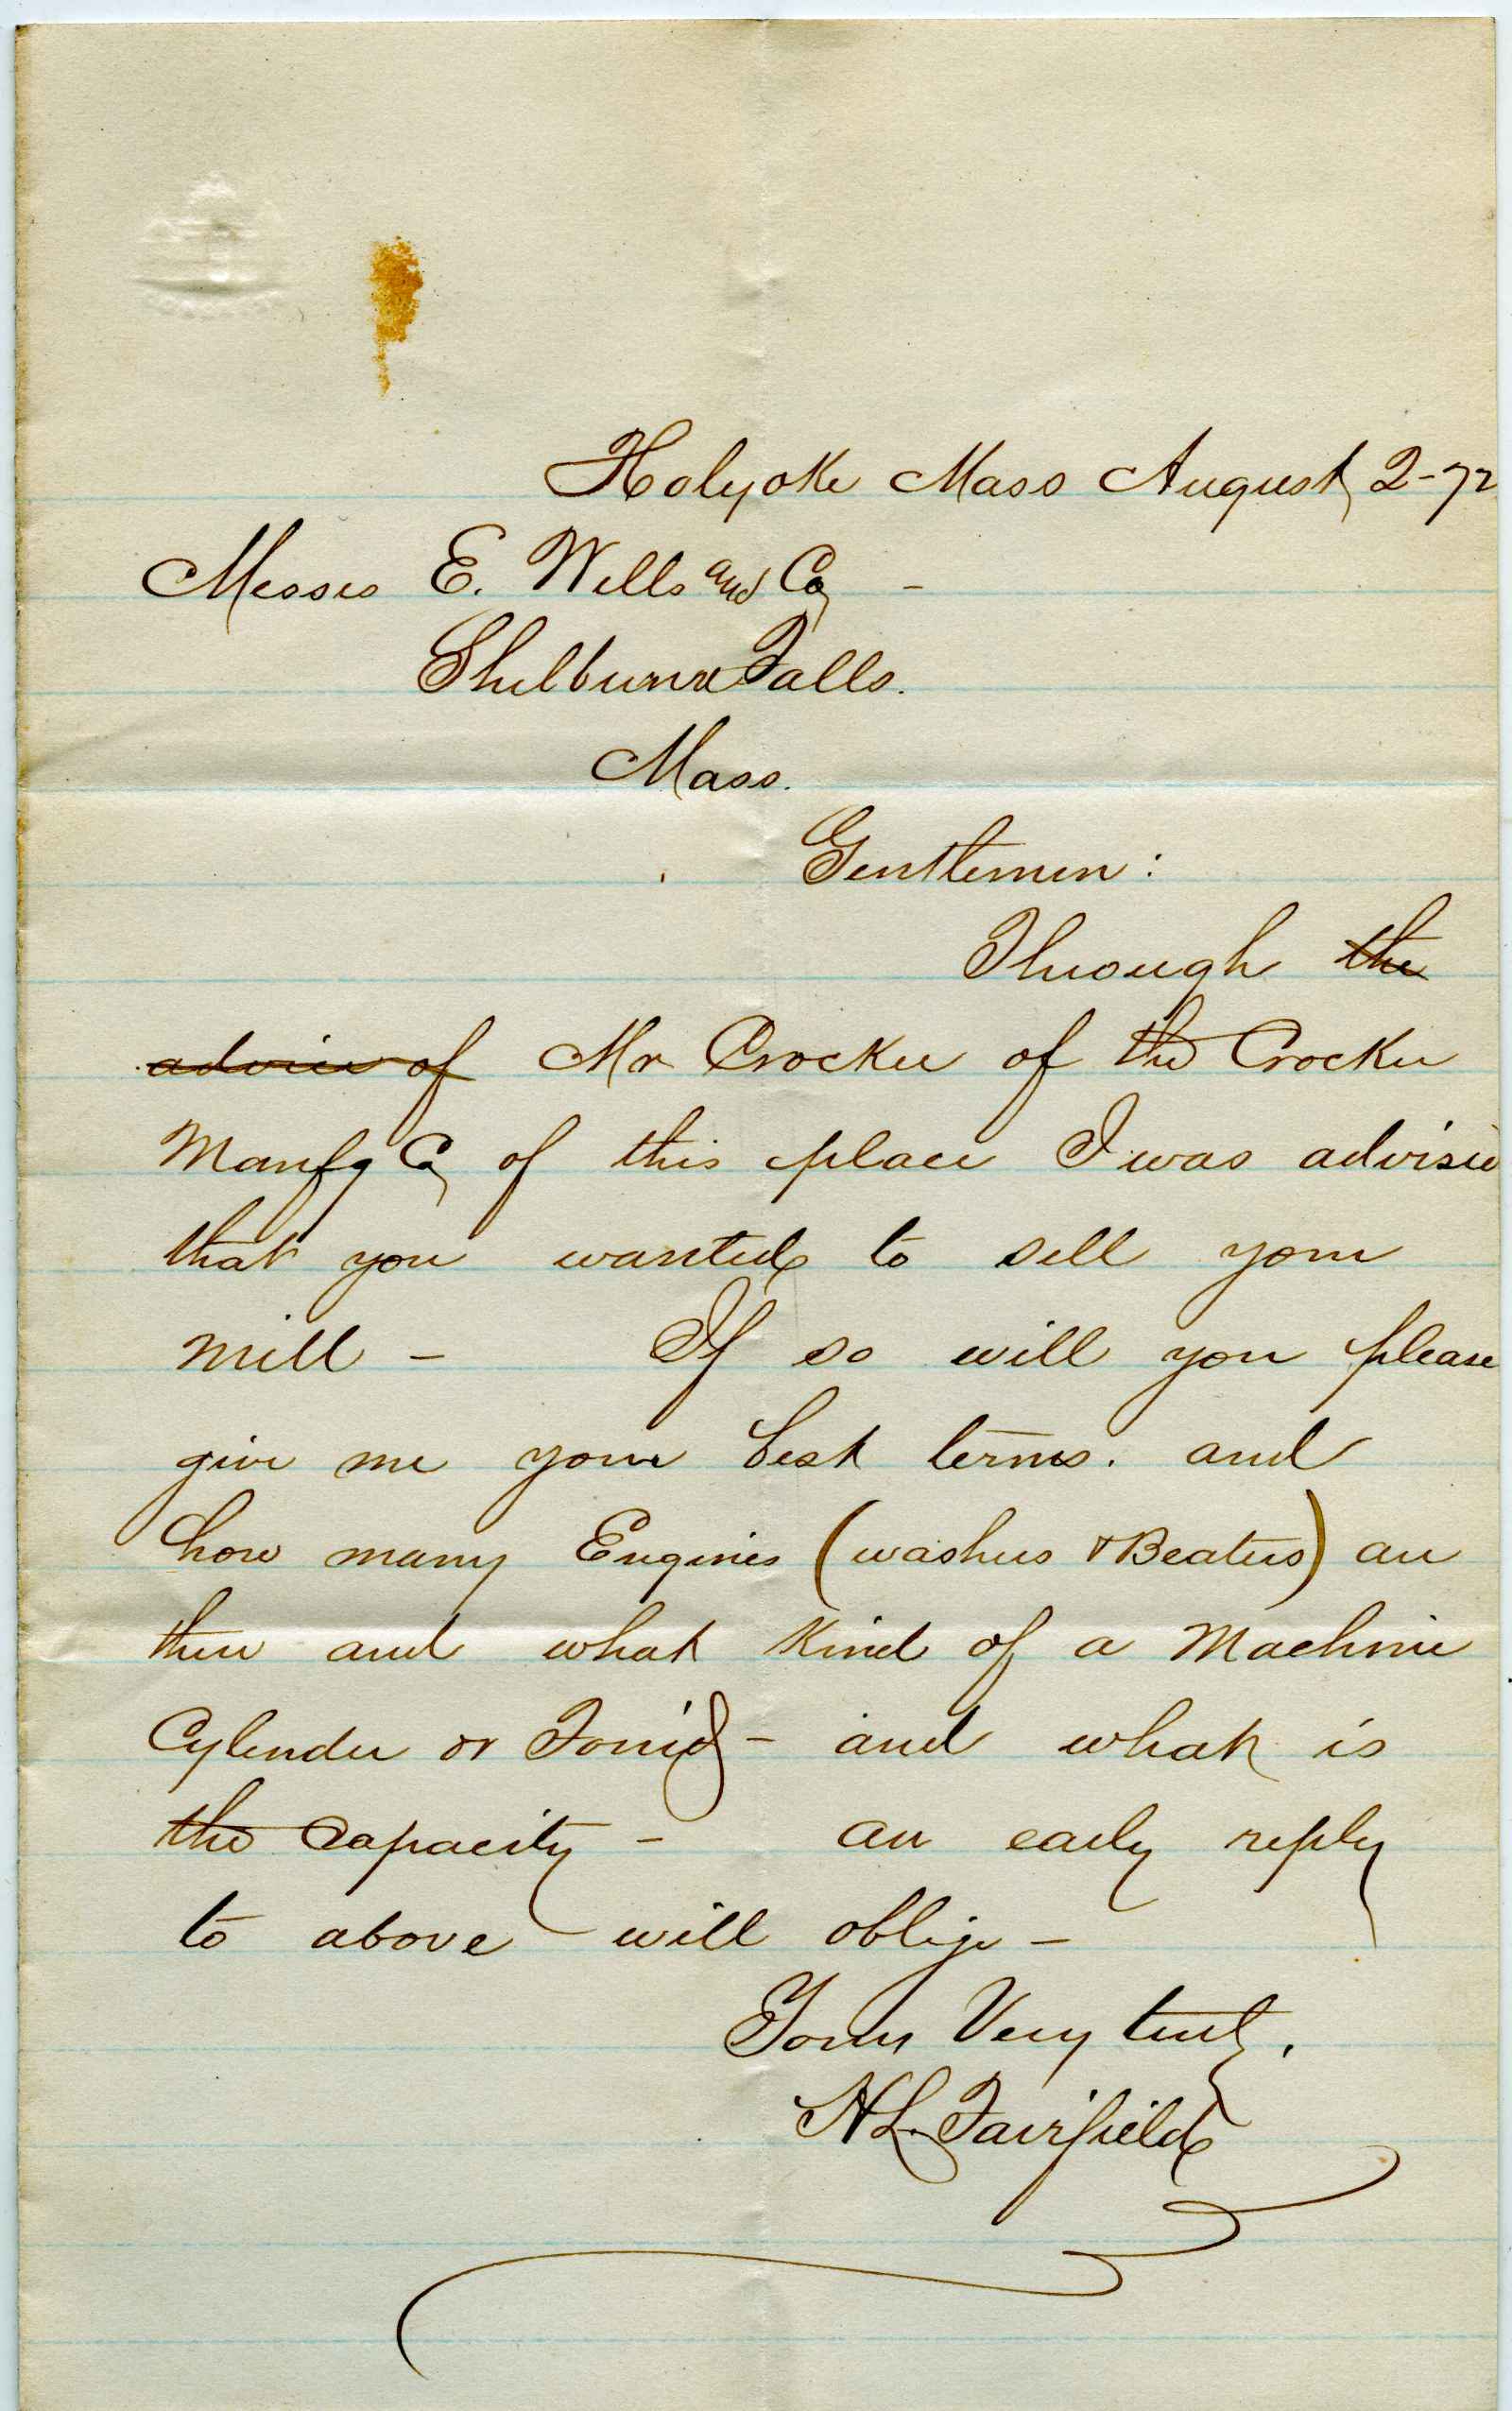 Holyoke Mass August 2-72
Messrs E. Wells and Co -
Shelburne Falls.
Mass.
Gentlemen:
Through the
advice of Mr Crocker of the Crocker
Manfg Co of this place I was advised
that you wanted to sell your
mill - If so will you please
give me your best terms. and
how many Engines (washers & Beaters) are
there and what kind of a Machine
Cylender or Fourd - and what is
the Capacity - an early reply
to above will oblige -
Yours Very truly,
H L. Fairfield